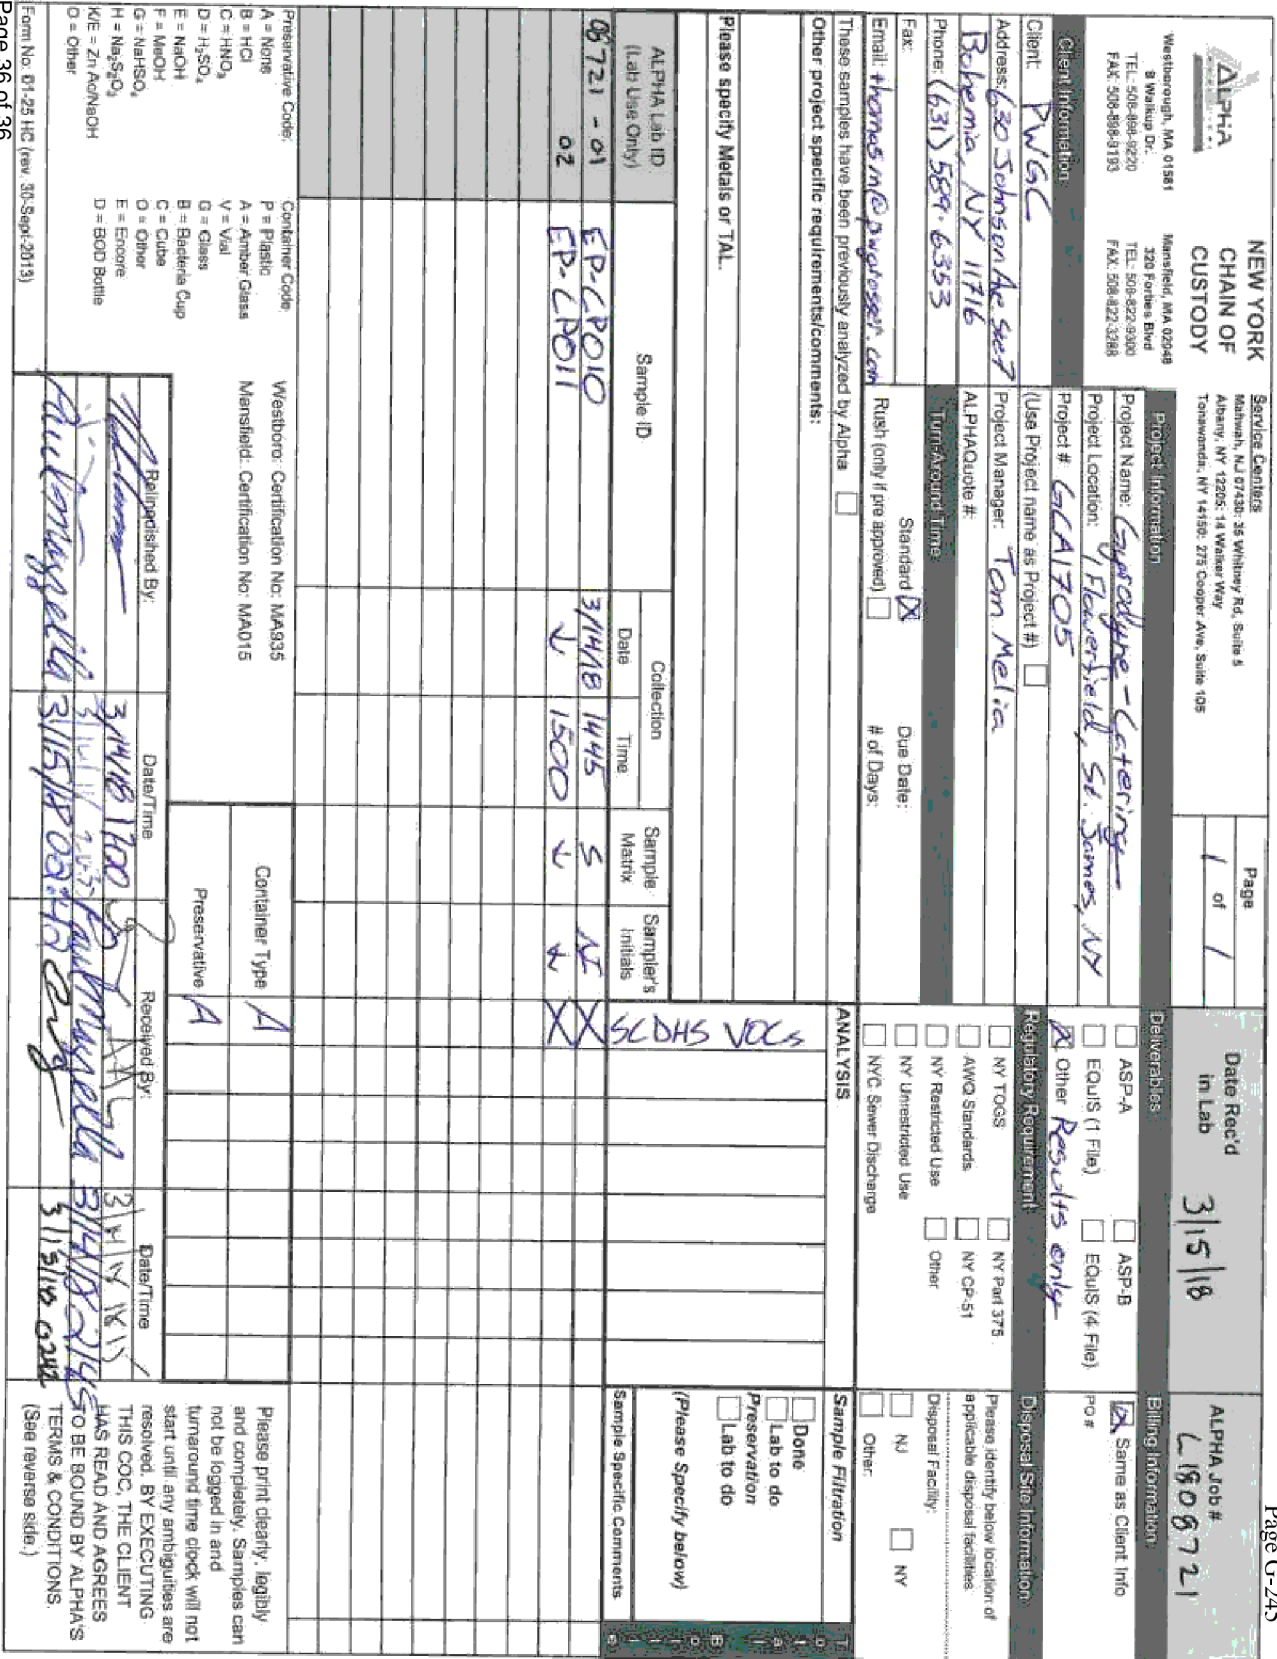 Page G-245
ALPHA
NEW YORK
CHAIN OF
CUSTODY
Westborough, MA 01581
8 Walkup Dr.
TEL: 508-898-9220
FAX: 508-898-9193
Mansfield, MA 02048
320 Forbes Blvd
TEL: 508-822-9300
FAX: 508-822-3288
Service Centers
Mahwah, NJ 07430: 35 Whitney Rd, Suite 5
Albany, NY 12205: 14 Walker Way
Tonawanda, NY 14150: 275 Cooper Ave, Suite 105
Page
1 of 1
Date Rec'd
in Lab 3/15/18
ALPHA Job #
L1808721
Client Information
Client: PWGC
Address: 630 Johnson Ave Ste 7
Bohemia, NY 11716
Phone: (631) 589-6353
Fax:
Email: thomasm@pwgrosser.com
Project Information
Project Name: Gyrodyne - Catering
Project Location: 1 Flowerfield, St. James, NY
Project # GCA1705
(Use Project name as Project #)
Project Manager: Tom Melia
ALPHAQuote #:
Turn-Around Time
Standard X Due Date:
Rush (only if pre approved) # of Days:
Deliverables
ASP-A ASP-B
EQuIS (1 File) EQuIS (4 File)
X Other Results only
Regulatory Requirement
NY TOGS NY Part 375
AWQ Standards NY CP-51
NY Restricted Use Other
NY Unrestricted Use
NYC Sewer Discharge
Billing Information
X Same as Client Info
PO #
Disposal Site Information
Please identify below location of
applicable disposal facilities.
Disposal Facility:
NJ NY
Other:
These samples have been previously analyzed by Alpha
Other project specific requirements/comments:
Please specify Metals or TAL.
ANALYSIS
SCDHS VOCs
Sample Filtration
Done
Lab to do
Preservation
Lab to do
(Please Specify below)
Total Bottle
ALPHA Lab ID
(Lab Use Only)
Sample ID
Collection
Date Time
Sample
Matrix
Sampler's
Initials
Sample Specific Comments
08721 - 01 EP-CP010 3/14/18 1445 S X
02 EP-CP011 ↓ 1500 ↓ ↓ X
Preservative Code:
A = None
B = HCl
C = HNO₃
D = H₂SO₄
E = NaOH
F = MeOH
G = NaHSO₄
H = Na₂S₂O₃
K/E = Zn Ac/NaOH
O = Other
Container Code
P = Plastic
A = Amber Glass
V = Vial
G = Glass
B = Bacteria Cup
C = Cube
O = Other
E = Encore
D = BOD Bottle
Westboro: Certification No: MA935
Mansfield: Certification No: MA015
Container Type A
Preservative A
Relinquished By: Date/Time Received By: Date/Time
3/14/18 1700
Paul Mazzella 3/14/18 2145
Paul Mazzella 3/15/18 00:40 3/15/18 0242
Please print clearly, legibly
and completely. Samples can
not be logged in and
turnaround time clock will not
start until any ambiguities are
resolved. BY EXECUTING
THIS COC, THE CLIENT
HAS READ AND AGREES
TO BE BOUND BY ALPHA'S
TERMS & CONDITIONS.
(See reverse side.)
Form No: 01-25 HC (rev. 30-Sept-2013)
Page 36 of 36